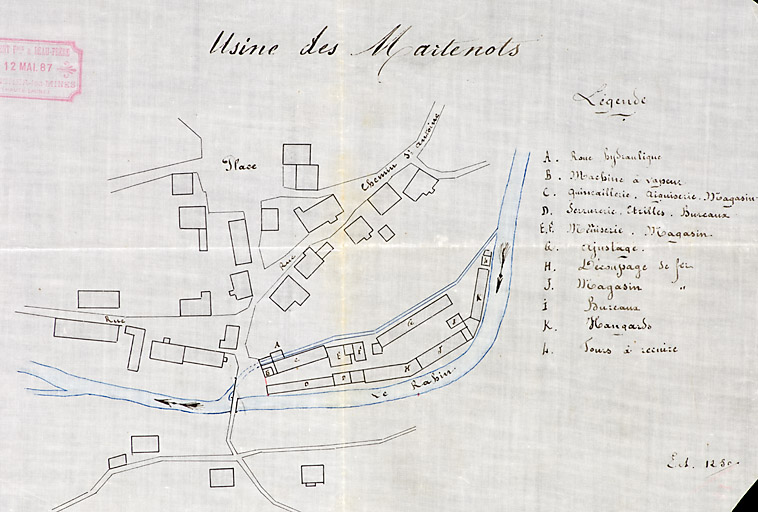 Usine des Martenots
12 MAI. 87
MINES
Légende
A. Roue hydraulique
B. Machine à vapeur
C. Quincaillerie, Aiguiserie, Magasin
D. Serrurerie, Etrilles, Bureaux
E.F. Menuiserie, Magasin
G. Ajustage.
H. Découpage de fer
J. Magasin "
I Bureaux
K. Hangards
L. Fours à recuire
Place
Chemin St Antoine
Rue
Rue
A
B
C
E
F
G
K
D
D
H
J
Le Rabin
Ech.